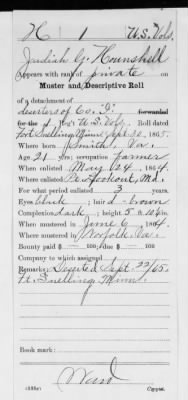 H 1 U.S. Vols.
Judish G. Hounshell
Appears with rank of private on
Muster and Descriptive Roll
of a detachment of
deserters of Co. "I", forwarded
for the 1 Reg't U.S. Vols. Roll dated
Fort Snelling Minn Sept. 30, 1865.
Where born Smith, Va.
Age 21 y'rs; occupation Farmer
When enlisted May 24, 1864.
Where enlisted Pt. Lookout, Md.
For what period enlisted 3 years.
Eyes black; hair d-brown
Complexion dark; height 5 ft. 10½ in.
When mustered in June 6, 1864.
Where mustered in Norfolk, Va.
Bounty paid $ 100; due $ 100
Company to which assigned
Remarks: Deserted Sept. 22/65.
Ft. Snelling Minn.
Book mark:
Ward
Copyist.